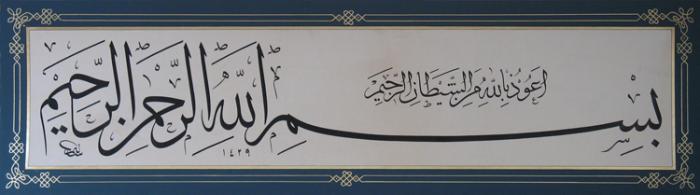 اعوذ بالله من الشيطان الرجيم
بسم الله الرحمن الرحيم
١٤٢٩